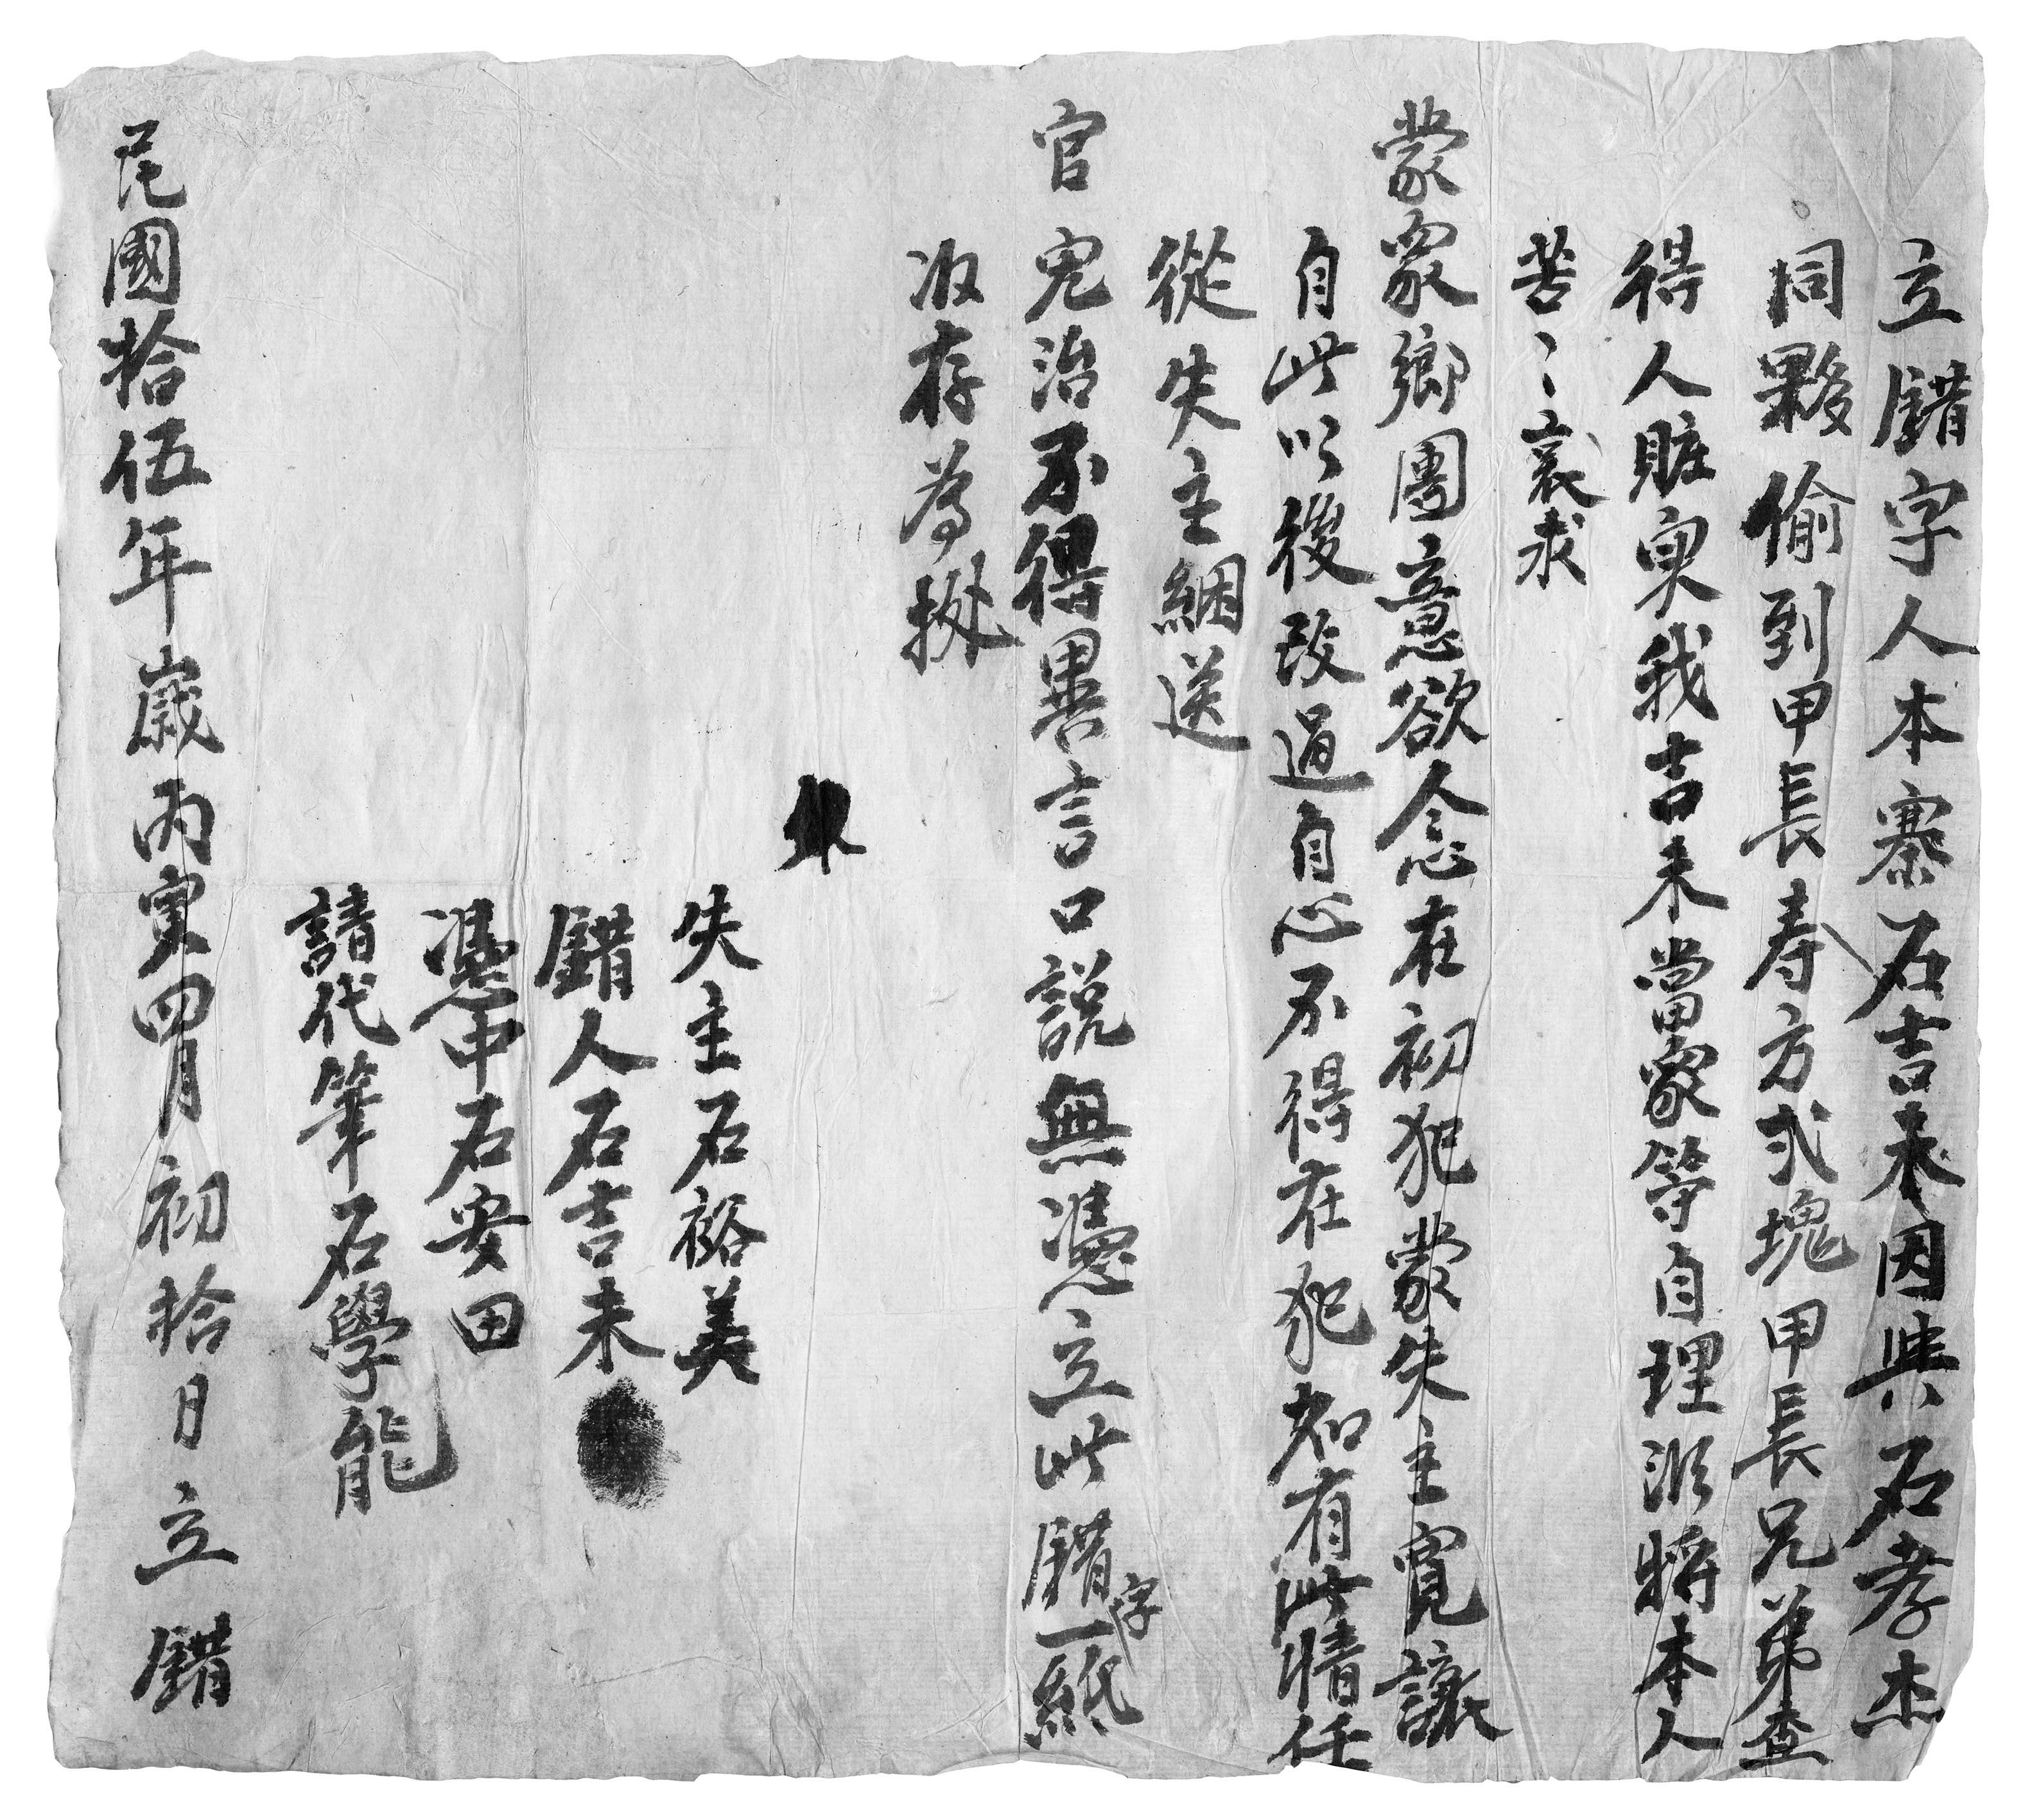 立錯字人本寨石吉未因與石孝杰
同夥偷到甲長寿方弍塊甲長兄弟查
得人賍寔我吉未當眾等自理派將本人
苦〻哀求
蒙眾鄉團意欲念在初犯蒙失主寬讓
自此以後改過自心不得在犯如有此情任
從失主綑送
官究治不得異言口説無憑立此錯字一紙
收存為拠
失主石裕美
錯人石吉未
憑中石安田
請代筆石學能
民國拾伍年歲丙寅四月初拾日立錯